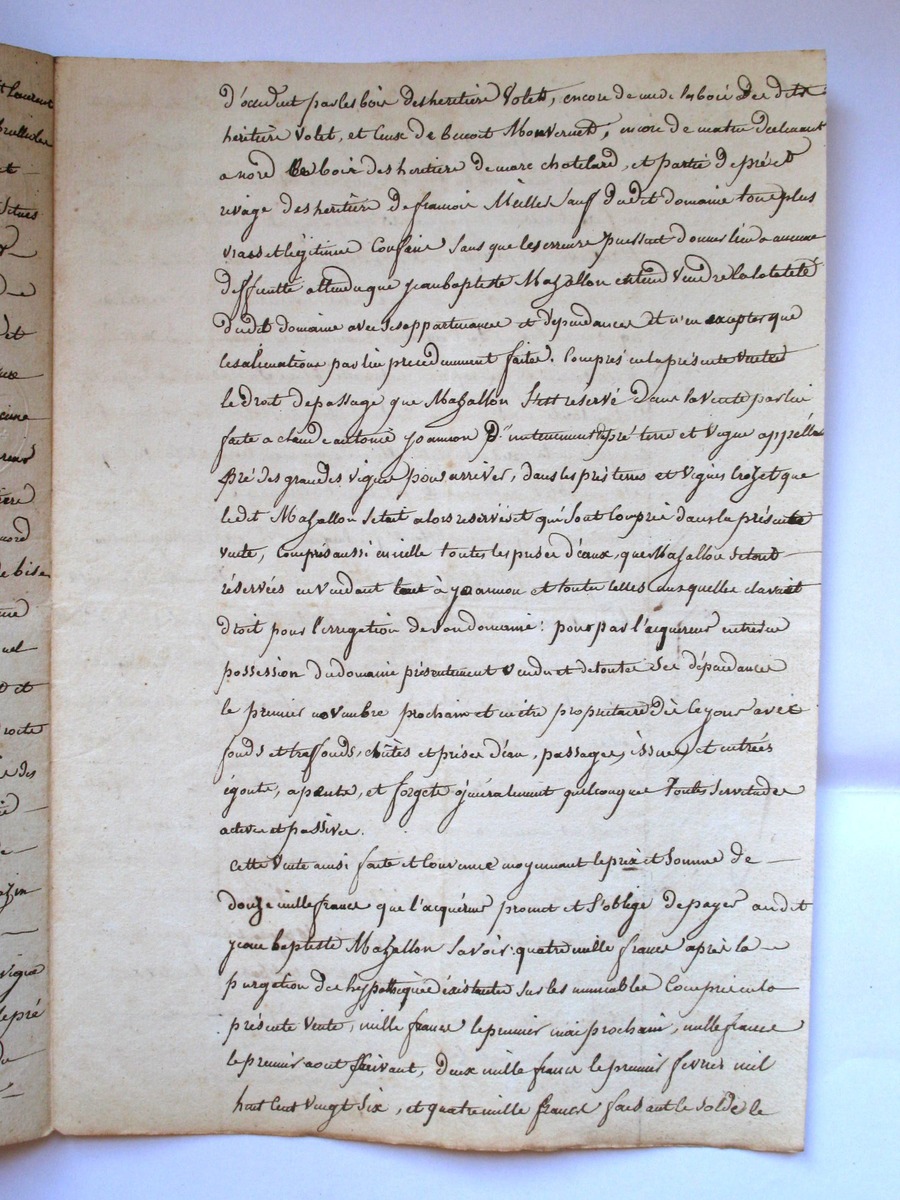 t Laurent
et
situés
d'occident par les bois des heritiers Volet, encore de midi les bois des dits
heritiers Volet, et ceux de benoit Monvernet, encore de matin declinant
a nord les bois des heritiers de marc chatelard, et partie de pré et
rivage des heritiers de francois Meilles sauf dudit domaine tous plus
vrais et légitimes Confins sans que les erreurs puissent donner lieu a aucune
difficulté attendu que jean baptiste Mazallon entend vendre la totalité
dudit domaine avec ses appartenances et dépendances et n'en excepter que
les alienations par lui precédemment faites. Compris en la présente vente
le droit de passage que Mazallon s'est réservé dans la vente par lui
faite a claude antoine yoannon d'un tenement de pré terre et vigne appellé
pré des grandes vignes pour arriver, dans les prés terres et vignes crozet que
ledit Mazallon s'etait alors reservés et qui sont compris dans la présente
vente, compris aussi en icelle toutes les prises d'eaux, que Mazallon se sont
réservées en vendant tant à yoannon et toutes celles auxquelles il avait
droit pour l'irrigation de son domaine : pour par l'acquereur entrer en
possession du domaine présentement vendu et de toutes ses dépendances
le premier novembre prochain et en être propriétaire dès ce jour avec
fonds et treffonds, chûtes et prises d'eau, passages, issues et entrées
égouts, apents, et forgets généralement quelconques toutes servitudes
actives et passives.
Cette Vente ainsi faite et convenue moyennant le prix et somme de —
douze mille francs que l'acquéreur promet et s'oblige de payer audit
jean baptiste Mazallon savoir : quatre mille francs après la —
purgation des hypothèques éxistantes sur les immeubles Compris en la
présente Vente, mille francs le premier mai prochain, mille francs
le premier aout suivant, deux mille francs le premier fevrier mil
huit cent vingt six, et quatre mille francs faisant le solde le
nord
de bise
vigne
le pré